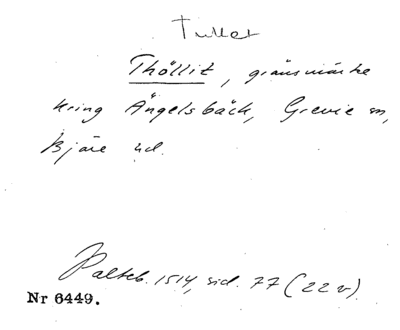 Tullet
Thöllit, gränsmärke
kring Ängelsbäck, Grevie sn,
Bjäre hd.
Palteb. 1514, sid. 77 (22 v).
Nr 6449.